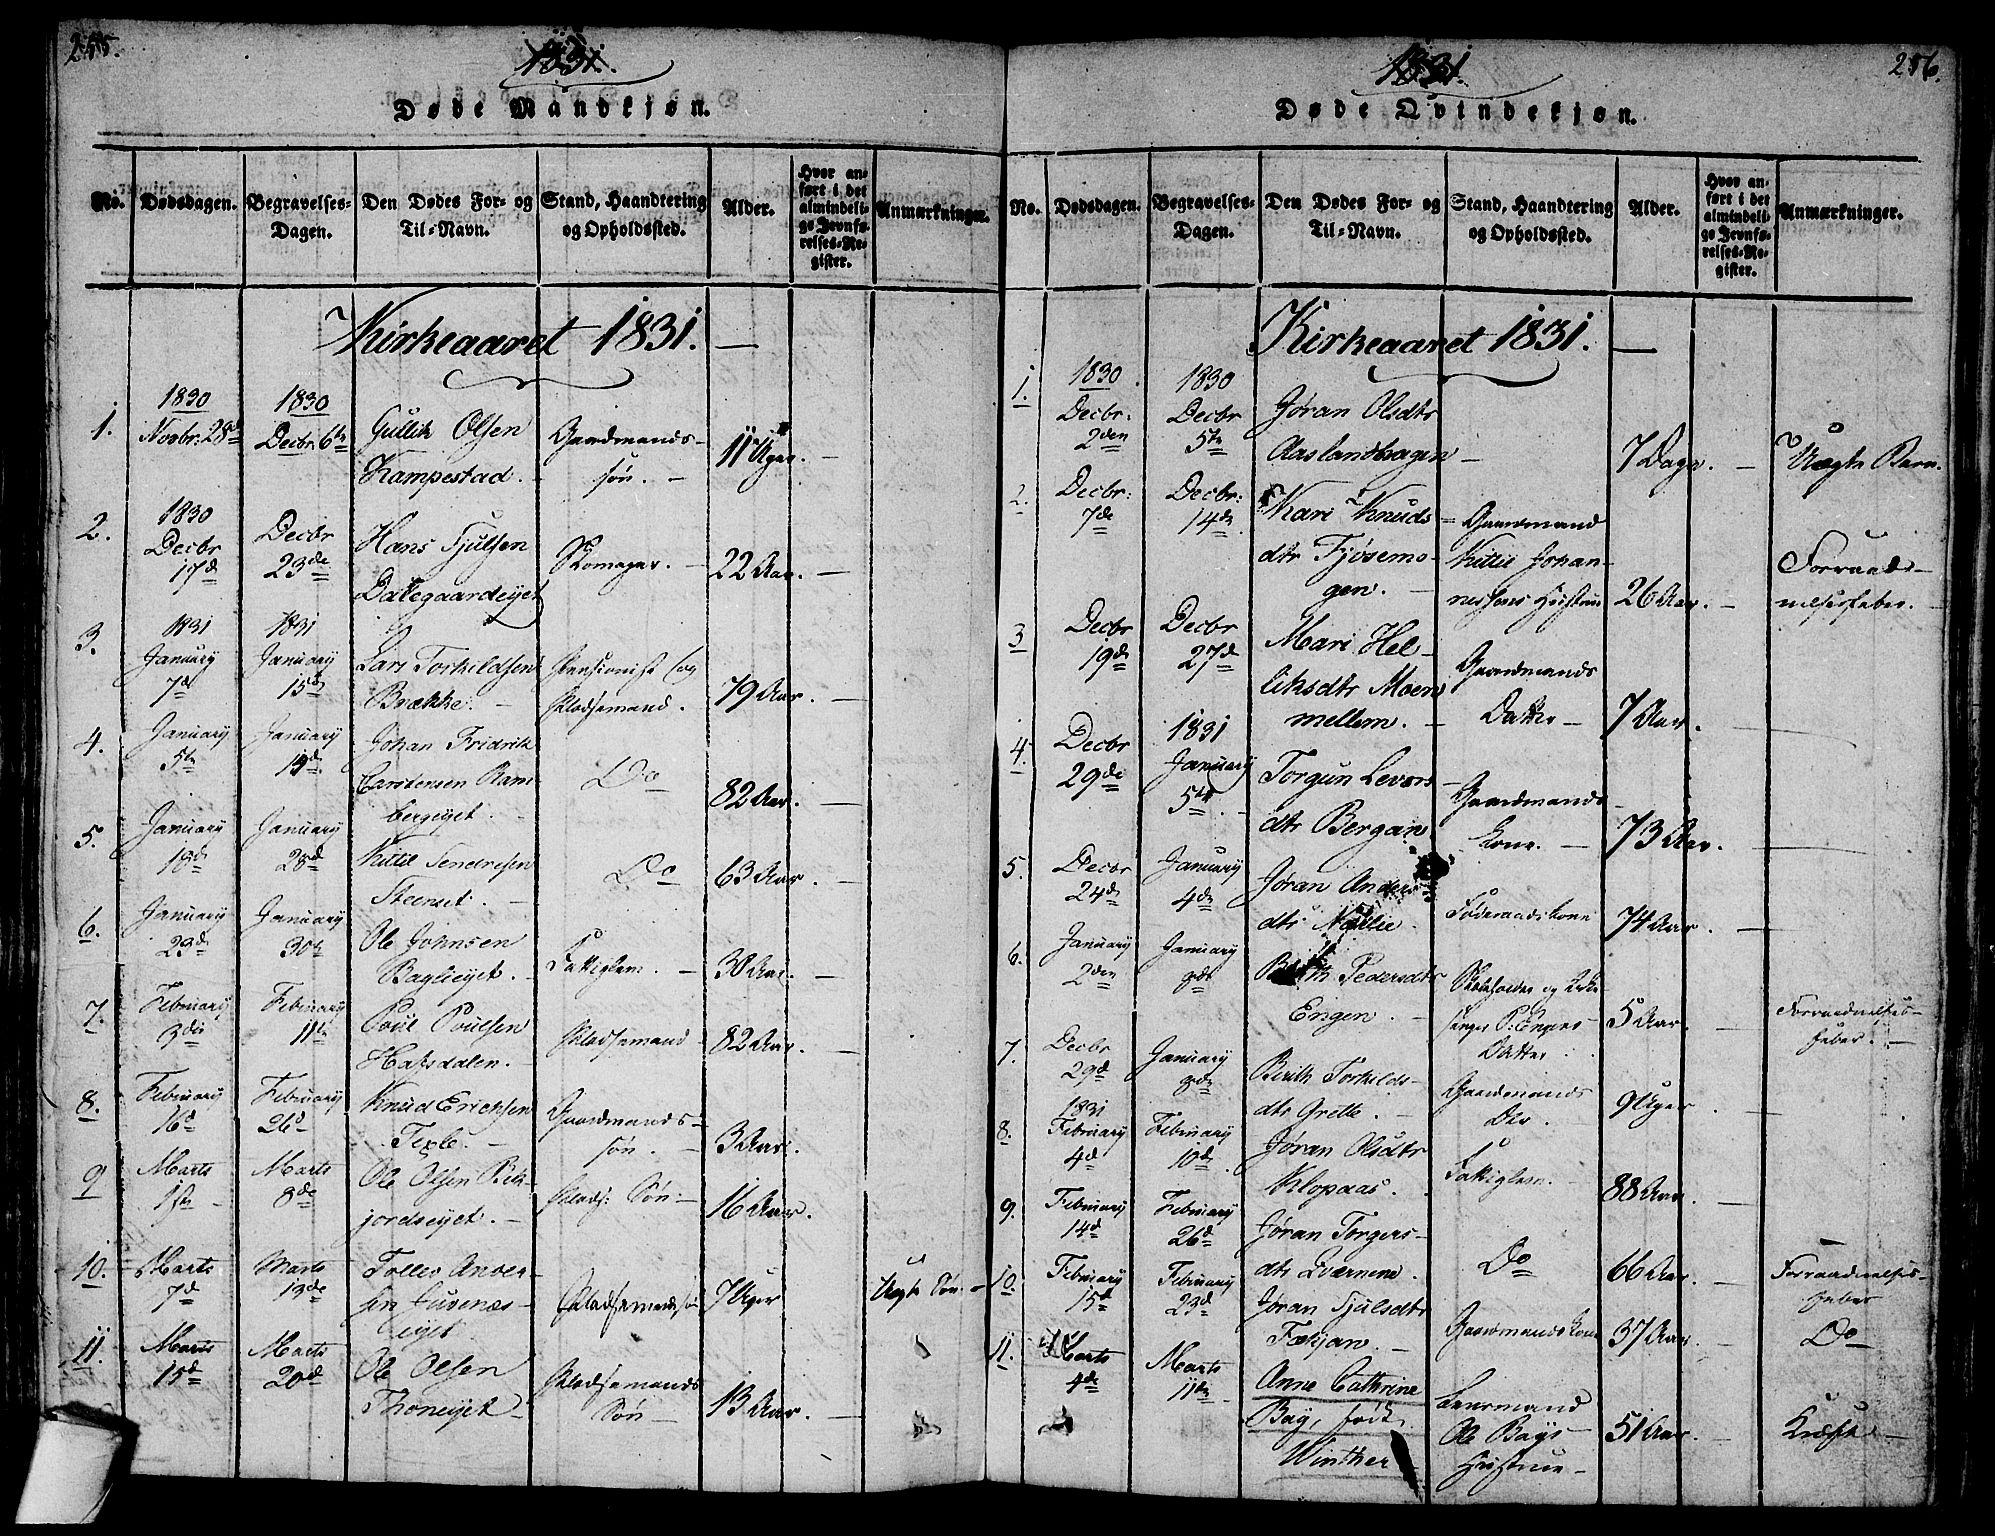 255.
1831.
Døde Mandkjøn.
No. Dødsdagen. Begravelses-Dagen. Den Dødes For- og Til-Navn. Stand, Haandtering og Opholdssted. Alder. Hvor anført i det almindelige Jevnførelses-Register. Anmærkninger.
Kirkeaaret 1831. —
1. 1830 Novbr: 28de 1830 Decbr: 6te Gullik Olsen Kampestad. Gaardmands-søn. 11 Uger.
2. 1830 Decbr 17de Decbr 23de Hans Tjulsen Dalegaardeyet Skomager. 22 Aar.
3. 1831 January 7de 1831 January 15de Lars Torkildsen Brække. Pensionist og Pladsemand. 79 Aar.
4. January 5te January 19de Johan Fridrik Carstensen Rambergeyet. Do 82 Aar.
5. January 18de January 28de Kittil Sendresen Steenset. Do 63 Aar.
6. January 23de January 30te Ole Johnsen Baglieyet. Fattiglem. 30 Aar.
7. February 3die February 11te Poul Poulsen Hafsdalen. Pladsemand 82 Aar.
8. February 16de February 26de Knud Erichsen Texle. Gaardmands-søn. 3 Aar.
9 Marts 1ste Marts 8de Ole Olsen Bekjordseyet. Plads: Søn: 16 Aar.
10. Marts 7de Marts 13de Tollev Andersen Juvenæseiyet Pladsemandssøn 7 Uger Uægte Søn.
11. Marts 15de Marts 20de Ole Olsen Thoneiyet Pladsemands Søn 13 Aar.
256.
1831.
Døde Qvindekjøn.
No. Dødsdagen. Begravelses-Dagen. Den Dødes For- og Til-Navn. Stand, Haandtering og Opholdssted. Alder. Hvor anført i det almindelige Jevnførelses-Register. Anmærkninger.
Kirkeaaret 1831. —
1. 1830 Decbr: 2den 1830 Decbr 5te Jøran Olsdtr Aaslandhagen 7 Dage. Uægte Barn.
2. Decbr: 7de Decbr: 14de Kari Knudsdtr Tjøsemogen. Gaardmand Kittil Johannessens Hustrue 26 Aar. Forraadnelsesfeber.
3 Decbr 19de Decbr 27de Mari Helliksdtr Moen mellem. Gaardmands Datter 7 Aar.
4. Decbr 29de 1831 January 5te Torgun Levorsdtr Bergan Gaardmands Kone. 73 Aar.
5. Decbr 24de January 4de Jøran Andersdtr Føderaadskone 74 Aar.
6. January 2den January 8de Berith Pedersdtr Engen. Skoleholder og Kirkesanger P. Engens Datter 5 Aar. Forraadnelsesfeber.
7. Decbr 29de January 8de Berith Torkildsdtr Grette. Gaardmands Dtr. 9 Uger
8. 1831 February 4de February 10de Jøran Olsdtr Klopaas. Fattiglem. 88 Aar.
9. February 14de February 26de Jøran Torgersdtr Qværnene. Do 66 Aar. Forraadnelsesfeber
10. February 15de February 23de Jøran Tjulsdtr Fækjan. Gaardmandskone 37 Aar. Do
11. Marts 4de Marts 11te Anne Cathrine Bay, født Winther Lensmand Ole Bays Hustrue 51 Aar. Kræft